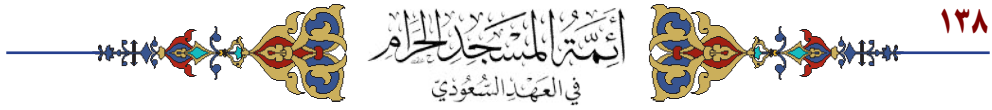 ١٣٨
أَئِمَّةُ المَسْجِدِ الحَرَامِ
فِي العَهْدِ السُّعُودِيّ